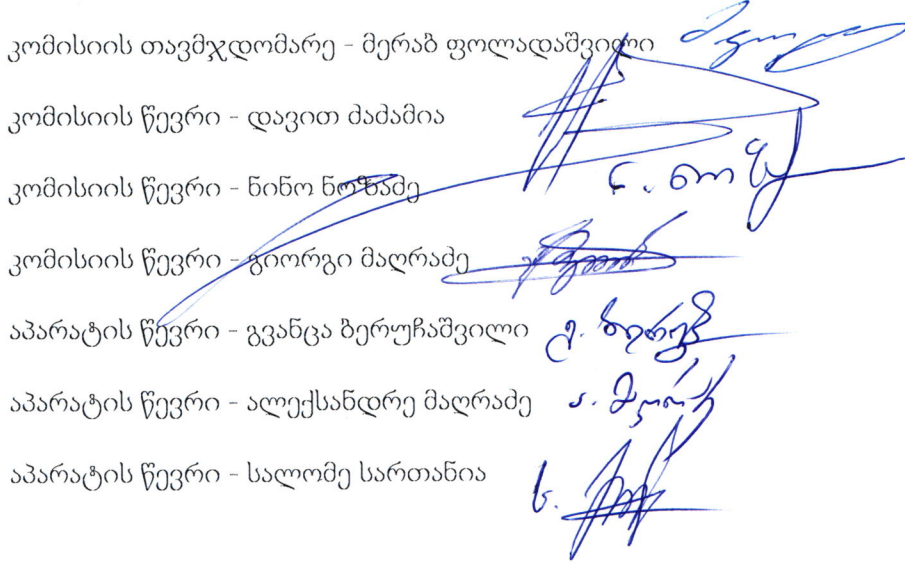 კომისიის თავმჯდომარე - მერაბ ფოლადაშვილი
კომისიის წევრი - დავით ძაძამია
კომისიის წევრი - ნინო ნოზაძე
კომისიის წევრი - გიორგი მაღრაძე
აპარატის წევრი - გვანცა ბერუჩაშვილი
აპარატის წევრი - ალექსანდრე მაღრაძე
აპარატის წევრი - სალომე სართანია